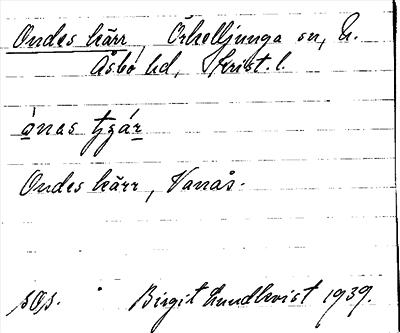 Ondes kärr, Örkelljunga sn, N.
Åsbo hd, Krist. l.
Ondes kärr, Vanås.
sOp. Birgit Lundkvist 1939.